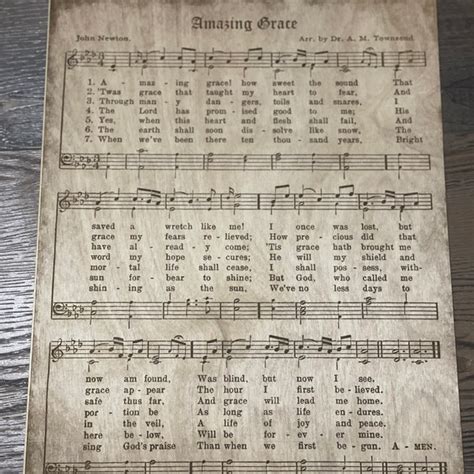 Amazing Grace
John Newton. Arr. by Dr. A. M. Townsend
1. A - maz - ing grace! how sweet the sound That
2. 'Twas grace that taught my heart to fear, And
3. Through man - y dan - gers, toils and snares, I
4. The Lord has prom - ised good to me; His
5. Yes, when this heart and flesh shall fail, And
6. The earth shall soon dis - solve like snow, The
7. When we've been there ten thou - sand years, Bright
saved a wretch like me! I once was lost, but
grace my fears re - lieved; How pre - cious did that
have al - read - y come; 'Tis grace hath brought me
word my hope se - cures; He will my shield and
mor - tal life shall cease, I shall pos - sess, with-
sun for - bear to shine; But God, who called me
shin - ing as the sun, We've no less days to
now am found, Was blind, but now I see.
grace ap - pear The hour I first be - lieved.
safe thus far, And grace will lead me home.
por - tion be As long as life en - dures.
in the veil, A life of joy and peace.
here be - low, Will be for - ev - er mine.
sing God's praise Than when we first be - gun. A - MEN.